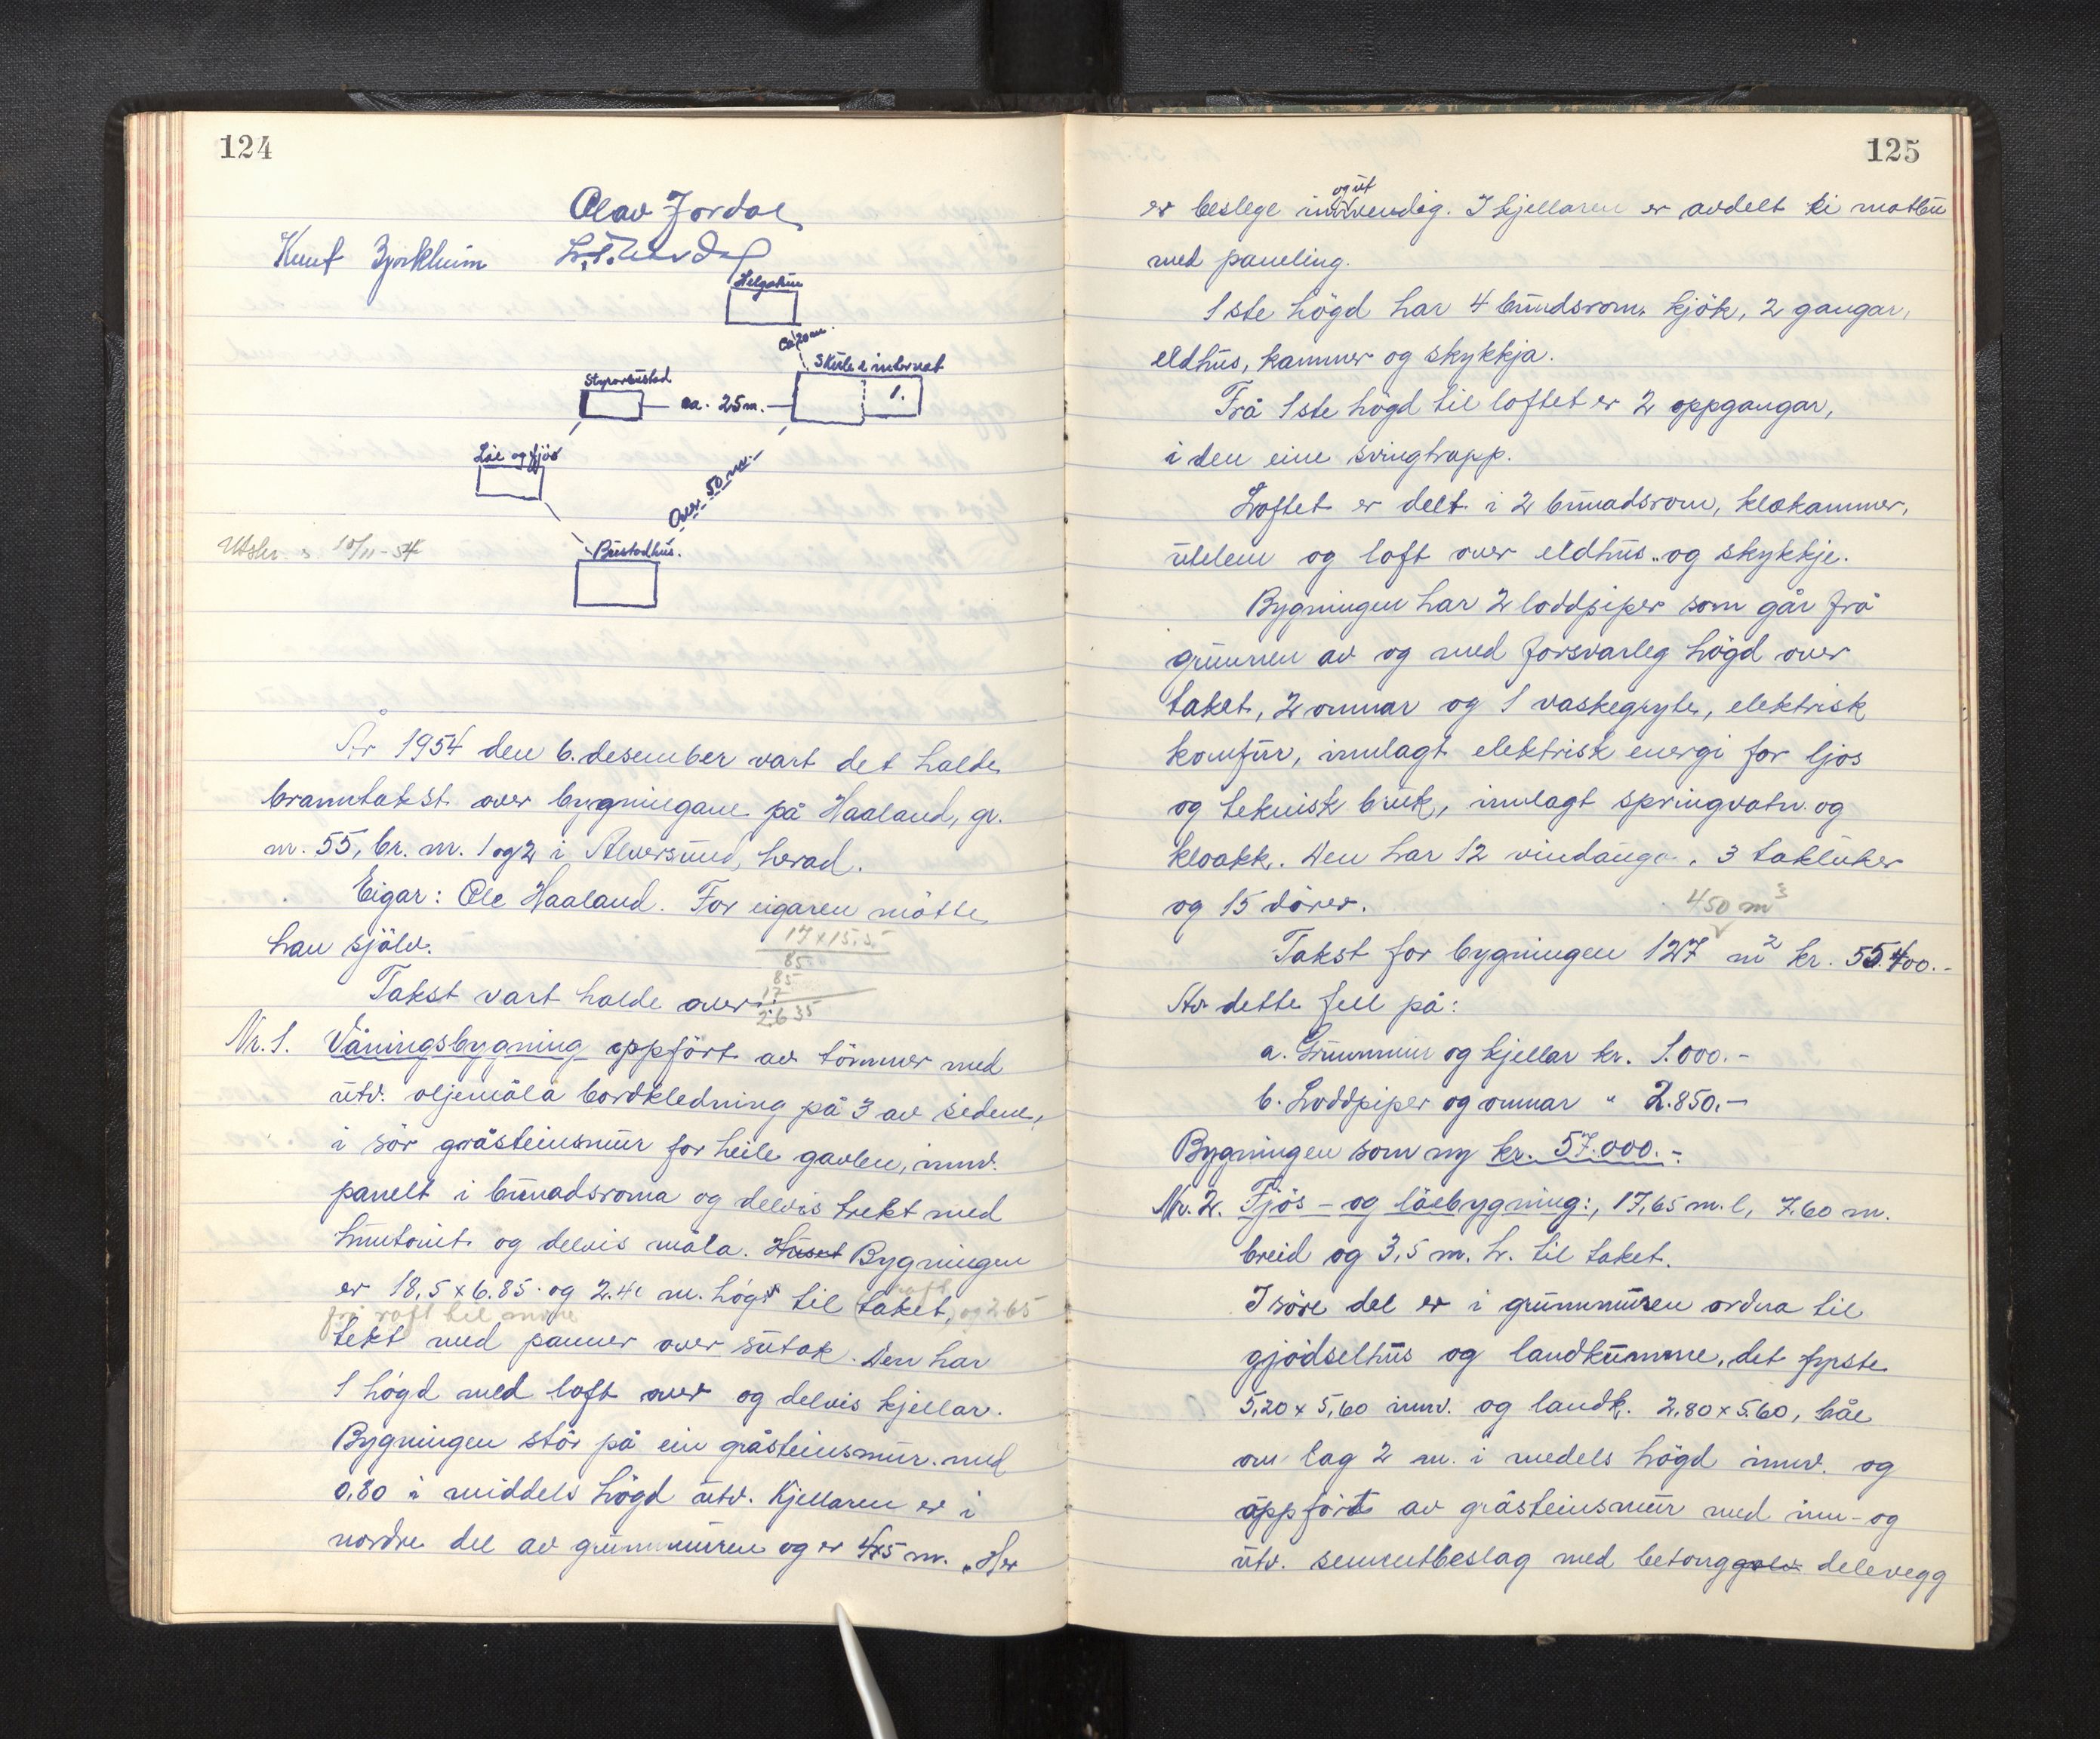 124
Olav Jordal
Knut Bjorkheim
Helgatun
ca 20 m.
Skule & internat
1.
Styrarbustad
ca. 25 m.
Löe og fjös
Over 50 m.
Utskr. s. 10/11-54
Bustadhus.
År 1954 den 6. desember vart det halde
branntakst over bygningane på Haaland, gr.
nr. 55, br. nr. 1 og 2 i Alversund, herad.
Eigar: Ole Haaland. For eigaren mötte
han sjölv.
17 x 15,5
85
85
17
2635
Takst vart halde over:
Nr. 1. Våningsbygning oppfört av tömmer med
utv. oljemåla bordkledning på 3 av sidene,
i sör gråsteinsmur for heile gavlen, innv.
panelt i bunadsroma og delvis trekt med
huntonit og delvis måla. Huset Bygningen
er 18,5 x 6.85 og 2.40 m. högd til taket, og 2.65
frå raft til möne
tekt med panner over sutak. Den har
1 högd med loft over og delvis kjellar.
Bygningen står på ein gråsteinsmur med
0,80 i middels högd utv. Kjellaren er i
nordre del av grunnmuren og er 4x5 m. Her
125
og ut
er beslege innvendig. I kjellaren er avdelt ei matbu
med paneling.
1ste högd har 4 bundsrom, kjök, 2 gangar,
eldhus, kammer og skykkja.
Frå 1ste högd til loftet er 2 oppgangar,
i den eine svingtrapp.
Loftet er delt i 2 bunadsrom, klokammer,
utelem og loft over eldhus og skykkje.
Bygningen har 2 loddpiper som går frå
grunnen av og med forsvarleg högd over
taket, 2 omnar og 1 vaskegryte, elektrisk
komfur, innlagt elektrisk energi for ljos
og teknisk bruk, innlagt springvatn og
kloakk. Den har 12 vindauga, 3 takluker
og 15 dörer.
450 m³
Takst for bygningen 127 m² kr. 55.400.-
Av dette fell på:
a. Grunnmur og kjellar kr. 1.000.-
b. Loddpiper og omnar " 2.850.-
Bygningen som ny kr. 57.000.-
Nr. 2. Fjös- og löebygning:, 17,65 m. l, 7.60 m.
breid og 3,5 m. h. til taket.
I söre del er i grunnmuren ordna til
gjödselhus og landkumme, det fyrste
5,20 x 5,60 innv. og landk. 2.80 x 5.60, båe
om lag 2 m. i medels högd innv. og
oppfört av gråsteinsmur med inn- og
utv. sementbeslag med betonggolv delevegg